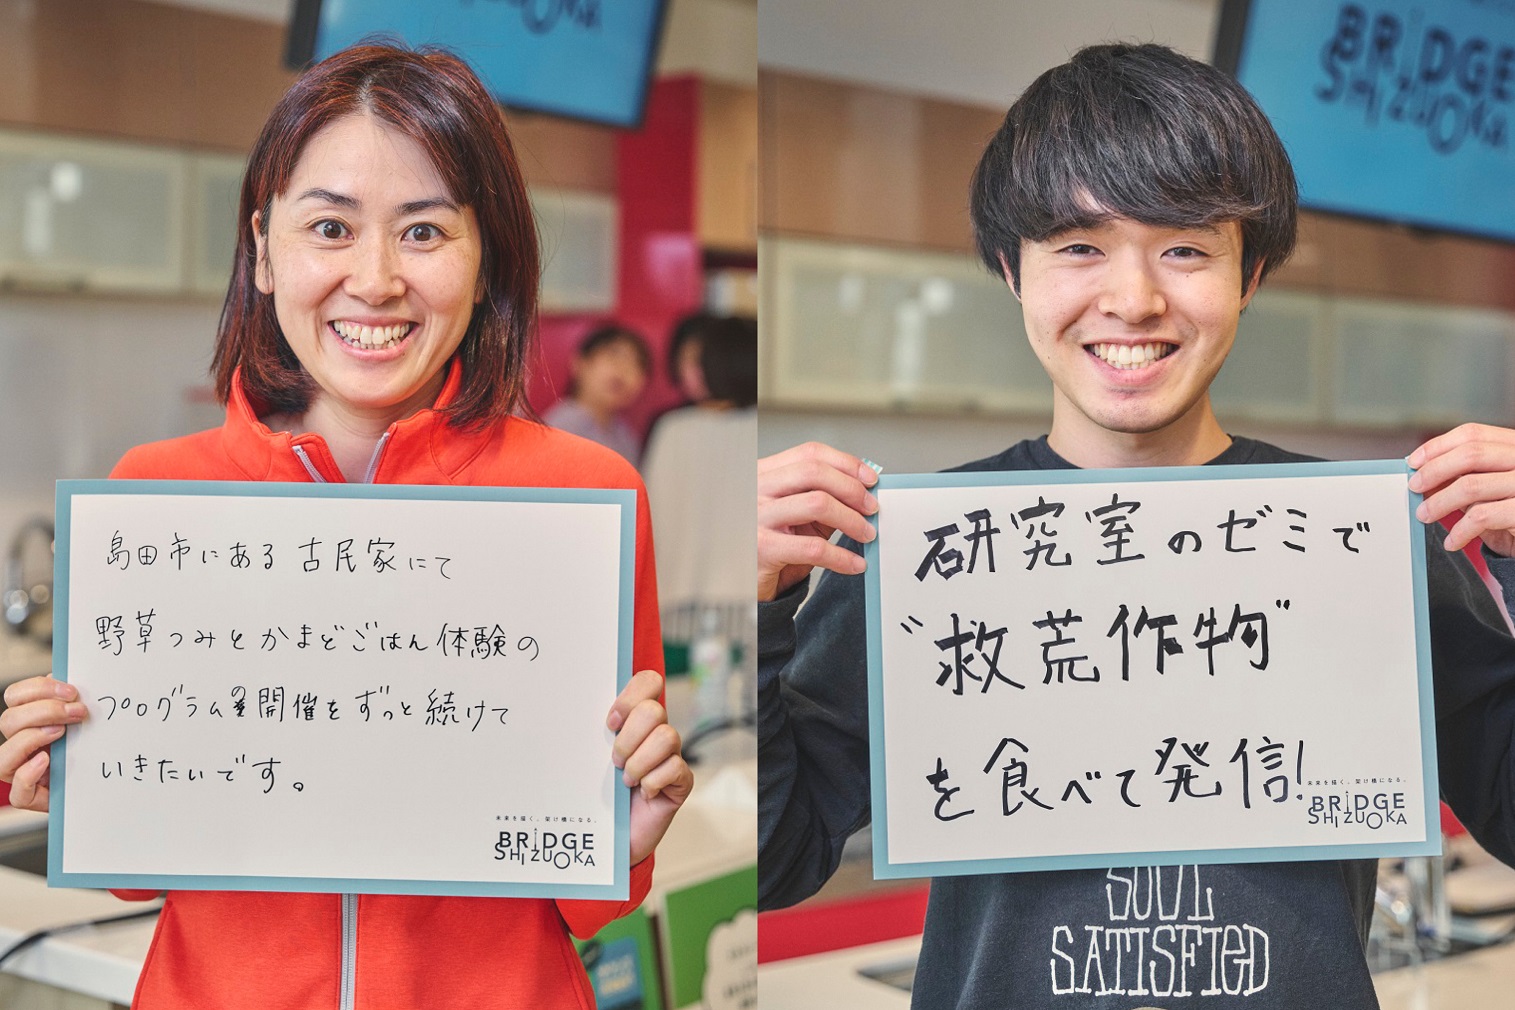 島田市にある古民家にて
野草つみとかまどごはん体験の
プログラムの開催をずっと続けて
いきたいです。
未来を描く、架け橋になる。
BRIDGE
SHIZUOKA
BRIDGE
SHIZUOKA
研究室のゼミで
"救荒作物"
を食べて発信!
未来を描く、架け橋になる。
BRIDGE
SHIZUOKA
SOUL
SATISFIED